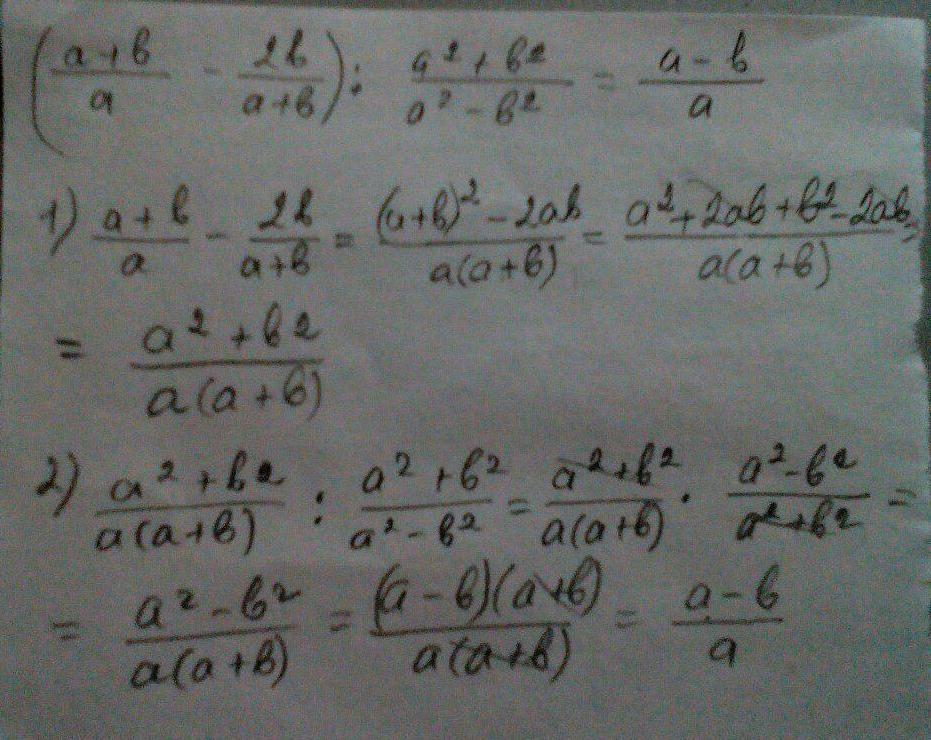 ((a+b)/a - 2b/(a+b)) : (a²+b²)/(a²-b²) = (a-b)/a
1) (a+b)/a - 2b/(a+b) = ((a+b)²-2ab)/(a(a+b)) = (a²+2ab+b²-2ab)/(a(a+b)) =
= (a²+b²)/(a(a+b))
2) (a²+b²)/(a(a+b)) : (a²+b²)/(a²-b²) = (a²+b²)/(a(a+b)) · (a²-b²)/(a²+b²) =
= (a²-b²)/(a(a+b)) = ((a-b)(a+b))/(a(a+b)) = (a-b)/a